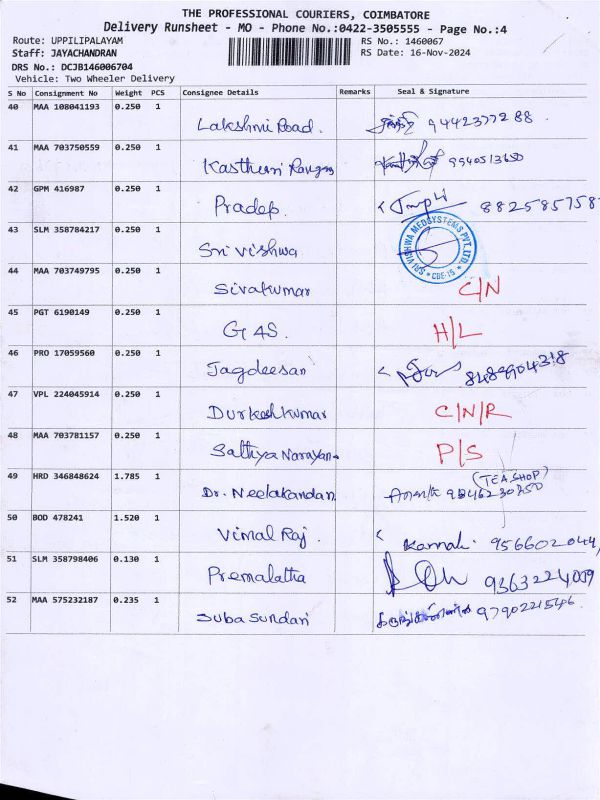 THE PROFESSIONAL COURIERS, COIMBATORE
Delivery Runsheet - MO - Phone No.:0422-3505555 - Page No.:4
Route: UPPILIPALAYAM RS No.: 1460067
Staff: JAYACHANDRAN RS Date: 16-Nov-2024
DRS No.: DCJB146006704
Vehicle: Two Wheeler Delivery
S No Consignment No Weight PCS Consignee Details Remarks Seal & Signature
40 MAA 108041193 0.250 1 Lakshmi Road. 9442377288
41 MAA 703750559 0.250 1 Kasthuri Rangan 9940513650
42 GPM 416987 0.250 1 Pradep. 8825857587
43 SLM 358784217 0.250 1 Sri Vishwa SRI VISHWA MEDSYSTEMS PVT. LTD. * CBE-15 *
44 MAA 703749795 0.250 1 Sivakumar C/N
45 PGT 6190149 0.250 1 G4S. H/L
46 PRO 17059560 0.250 1 Jagdeesan 8489904318
47 VPL 224045914 0.250 1 Durkesh kumar C/N/R
48 MAA 703781157 0.250 1 Sathya Narayan P/S
49 HRD 346848624 1.785 1 Dr. Neelakandan (TEA SHOP)
50 BOD 478241 1.520 1 Vimal Raj. 956602044
51 SLM 358798406 0.130 1 Premalatha 9363224009
52 MAA 575232187 0.235 1 Suba Sundari 9790221546